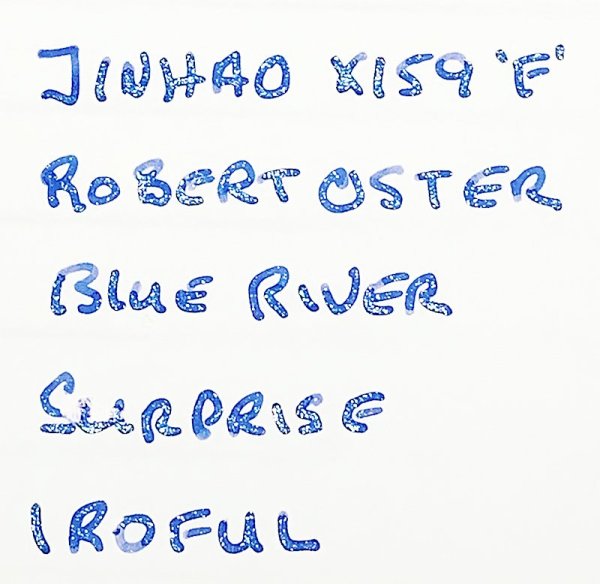 JINHAO X159 'F'
ROBERT OSTER
BLUE RIVER
SURPRISE
IROFUL